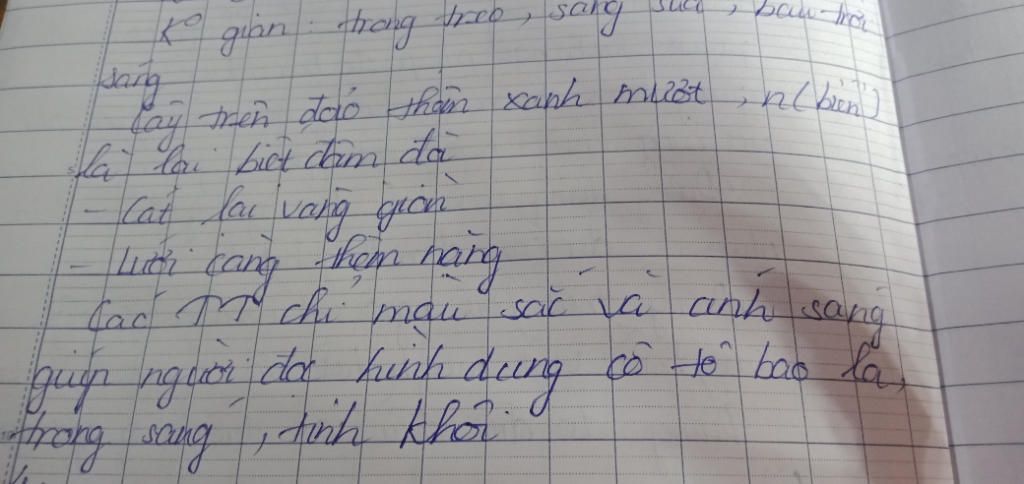 K° gian: trong trẻo, sáng sủa, bầu trời
sáng
Cây trên đảo thêm xanh mượt, n(biển)
là lại biết đậm đà
- Cát lại vàng giòn
- Lưới càng thêm nặng
Các TT chỉ màu sắc và ánh sáng
giúp người đọc hình dung cô tô bao la,
trong sáng, tinh khôi